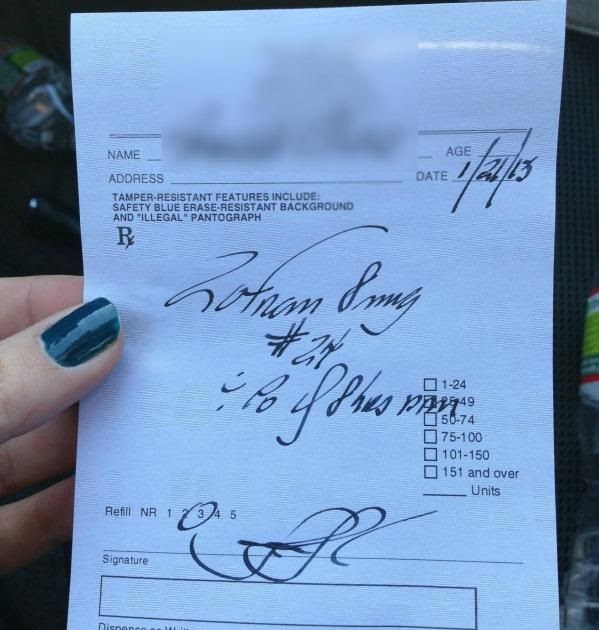 NAME
AGE
ADDRESS DATE 1/21/13
TAMPER-RESISTANT FEATURES INCLUDE:
SAFETY BLUE ERASE-RESISTANT BACKGROUND
AND "ILLEGAL" PANTOGRAPH
Rx
Zofran 8mg
#24
PO q 8hrs prn
1-24
25-49
50-74
75-100
101-150
151 and over
Units
Refill NR 1 2 3 4 5
Signature
Dispense as